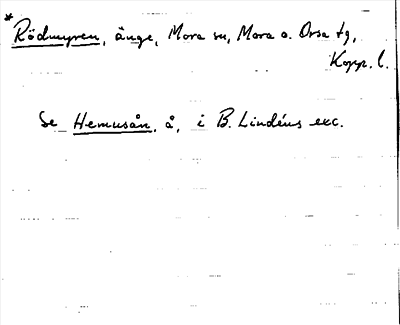 * Rödmyren, änge, Mora sn, Mora o. Orsa tg,
Kopp. l.
Se Hemusån, å, i B. Lindéns exc.